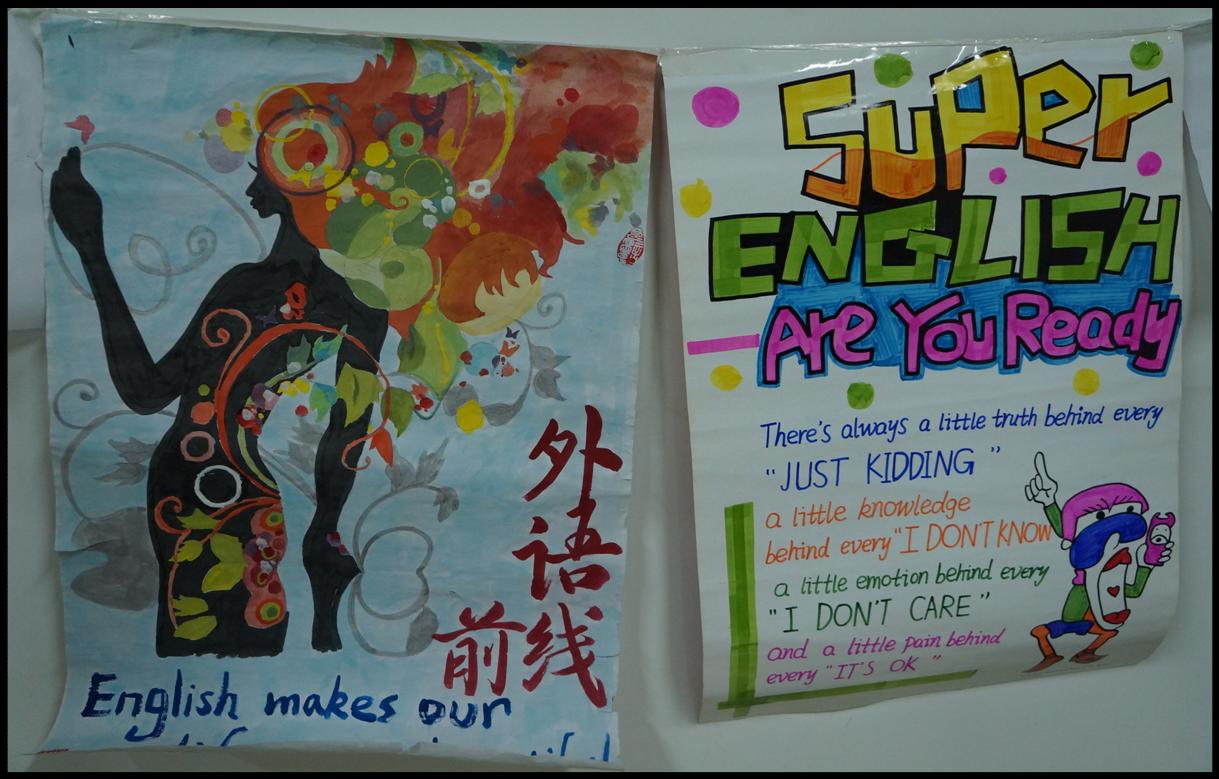 外
语
前线
English makes our
SuPer
ENGLISH
Are You Ready
There's always a little truth behind every
"JUST KIDDING"
a little knowledge
behind every "I DON'T KNOW
a little emotion behind every
"I DON'T CARE"
and a little pain behind
every "IT'S OK"